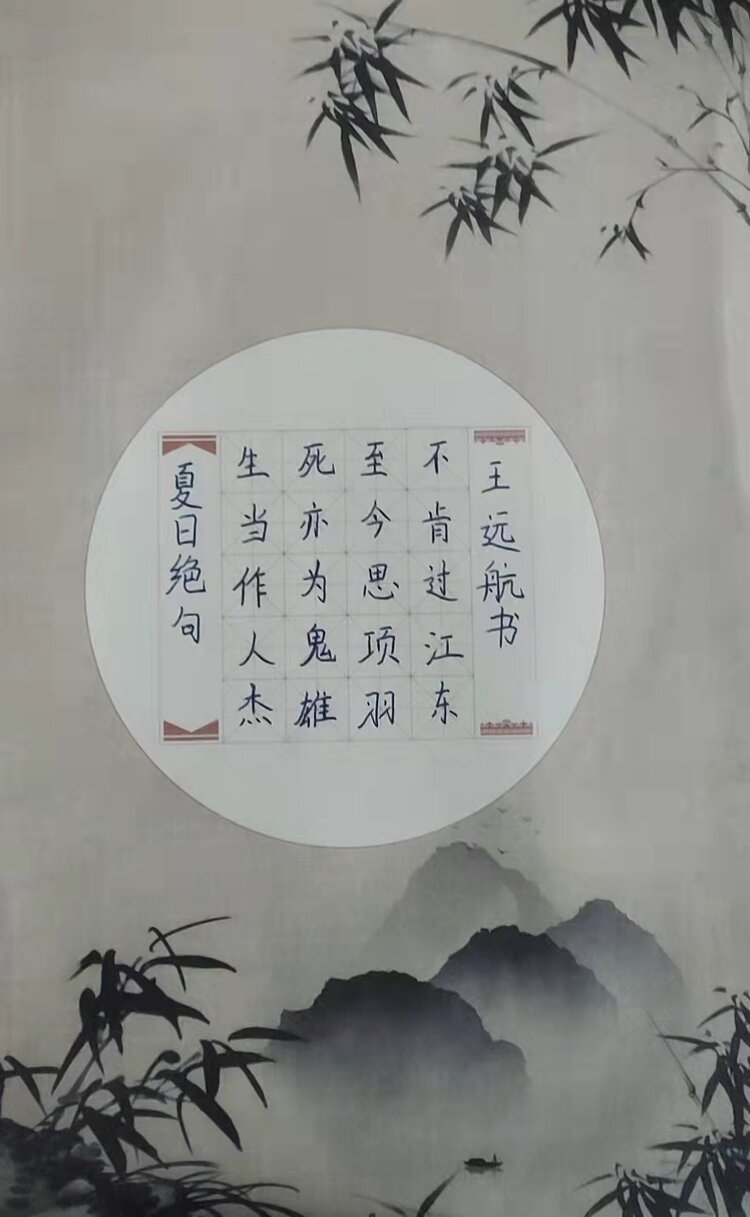 夏日绝句
生当作人杰
死亦为鬼雄
至今思项羽
不肯过江东
王远航书